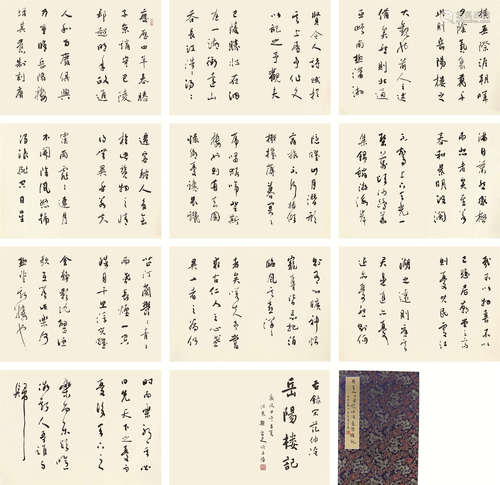 慶曆四年春滕
子京謫守巴陵
郡越明年政通
人和百廢俱興
乃重修岳陽樓
增其舊制刻唐
賢今人詩賦於
其上屬予作文
以記之予觀夫
巴陵勝狀在洞
庭一湖銜遠山
吞長江浩浩湯湯
橫無際涯朝暉
夕陰氣象萬千
此則岳陽樓之
大觀也前人之述
備矣然則北通
巫峽南極瀟湘
遷客騷人多會
於此覽物之情
得無異乎若夫
霪雨霏霏連月
不開陰風怒號
濁浪排空日星
隱曜山岳潛形
商旅不行檣傾
楫摧薄暮冥冥
虎嘯猿啼登斯
樓也則有去國
懷鄉憂讒畏譏
滿目蕭然感極
而悲者矣至若
春和景明波瀾
不驚上下天光一
碧萬頃沙鷗翔
集錦鱗游泳岸
芷汀蘭郁郁青青
而或長煙一空
皓月千里浮光躍
金靜影沉璧漁
歌互答此樂何
極登斯樓也
則有心曠神怡
寵辱皆忘把酒
臨風其喜洋洋
者矣嗟夫予嘗
求古仁人之心或
異二者之為何
哉不以物喜不
以己悲居廟堂之高
則憂其民處江
湖之遠則憂其
君是進亦憂
退亦憂然則何
時而樂耶其必
曰先天下之
憂而憂後天下之
樂而樂乎噫
微斯人吾誰與
歸
右錄宋范仲淹
岳陽樓記